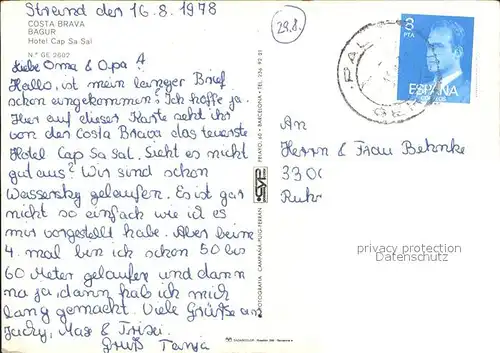 Strand den 16.8.1978
COSTA BRAVA
BAGUR
Hotel Cap Sa Sal
N.º GE 2602
29.8.
8
PTA
ESPAÑA
PAL
Liebe Oma & Opa!
Hallo, ist mein langer Brief
schon eingekommen? Ich hoffe ja.
Hier auf dieser Karte seht ihr
von der Costa Brava das teuerste
Hotel Cap Sa Sal. Sieht es nicht
gut aus? Wir sind schon
Wassersky gelaufen. Es ist gar
nicht so einfach wie ich es
mir vorgestellt habe. Aber beim
4. mal bin ich schon 50 bis
60 Meter gelaufen und dann
na ja, dann hab ich mich
lang gemacht. Viele Grüße an
Jacky, Max & Trixi.
Gruß Tanja
An
Herrn & Frau Behnke
3300
Ruhr
privacy protection
FOTOGRAFIA CAMPAÑA-PUIG-FERRAN
PELAYO, 60 - BARCELONA - TEL.